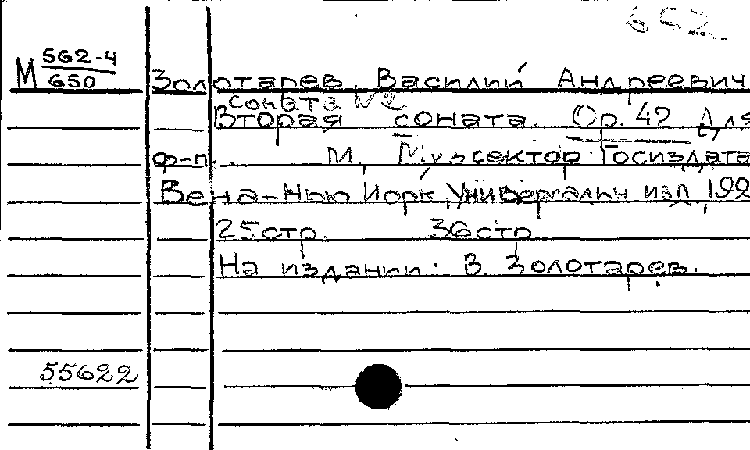 652
М 562-4
650
Золотарев, Василий Андреевич
Соната №2
Вторая соната. Ор. 42 Для
ф-п. М., Музсектор Госиздата
Вена-Нью Иорк, Универсальн изд, 192
25стр. 36стр
На издании: В. Золотарев.
55622